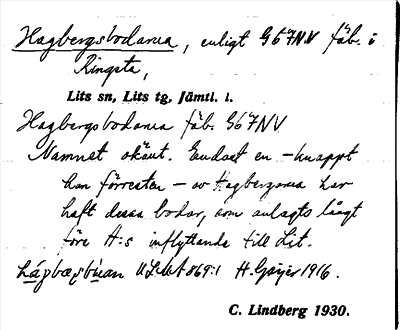 Hagbergsbodarna, enligt G67NV fäb. i
Ringsta,
Lits sn, Lits tg, Jämtl. l.
Hagbergsbodarna fäb. G67NV
Namnet okänt. Endast en – knappt
han förresten – av Hagbergarna har
haft dessa bodar, som anlagts långt
före H:s inflyttande till Lit.
ULMA 869:1 H. Geijer 1916.
C. Lindberg 1930.